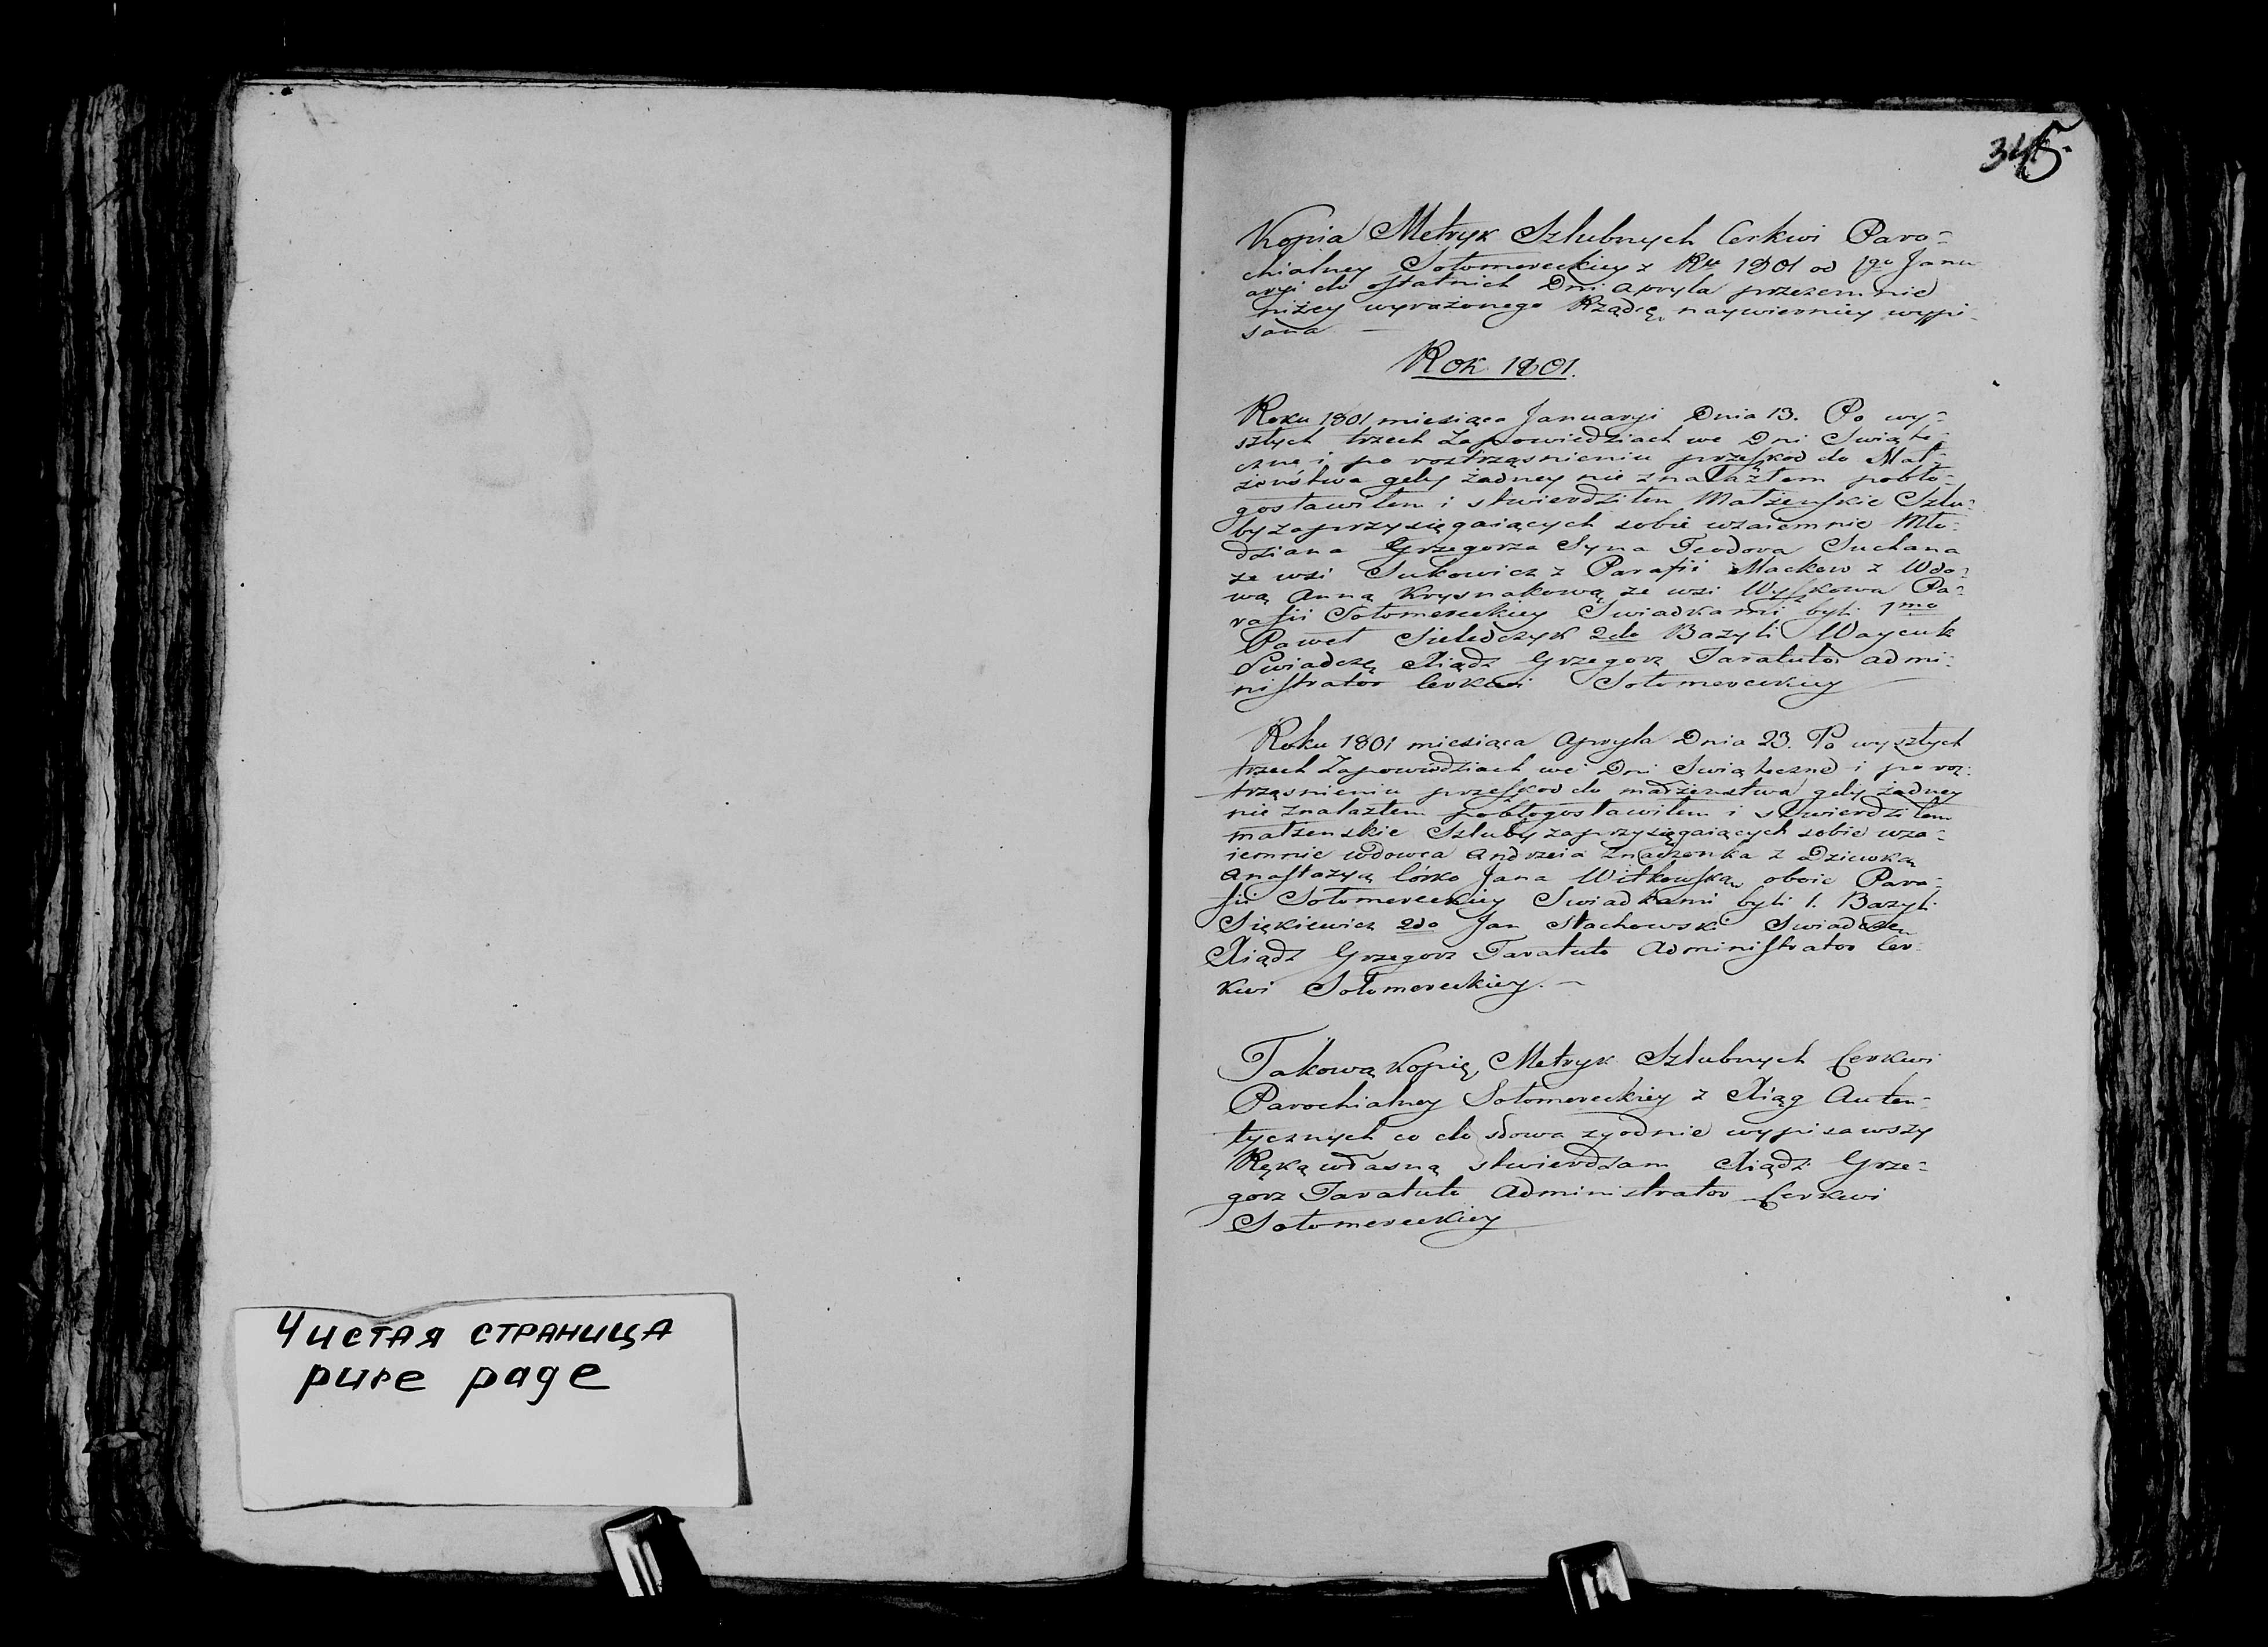 Чистая страница
pure page
345
Kopia Metryk Szlubnych Cerkwi Paro-
chialney Sołomereckiey z Rku 1801 od 1go Janu
aryi do ostatnich Dni Apryla przezemnie
niżey wyrażonego Rządcę naywierniey wypi-
sana —
Rok 1801.
Roku 1801 miesiąca Januaryi Dnia 13. Po wy-
szłych trzech Zapowiedziach we Dni Swięte-
czne i po roztrząsnieniu przeskod do Mał-
żeństwa gdy żadney nie znalazłem pobło-
gosławiłem i stwierdziłem Małżenskie Szlu-
by zaprzysięgaiących sobie wzaiemnie Mło-
dziana Grzegorza Syna Teodora Suchana
ze wsi Sukowicz z Parafii Mackow z Wdo-
wą Anną Krysnakową ze wsi Wyskowa Pa-
rafii Sołomereckiey Swiadkami byli 1mo
Paweł Sieledczyk 2do Bazyli Waycuk
Swiadczę Xiądz Grzegorz Taratuto Admi-
nistrator Cerkwi Sołomereckiey
Roku 1801 miesiąca Apryla Dnia 23. Po wyszłych
trzech Zapowiedziach we Dni Swiąteczne i po roz-
trząsnieniu przeskod do małżenstwa gdy żadney
nie znalazłem pobłogosławiłem i stwierdziłem
małżenskie Szluby zaprzysięgaiących sobie wza-
iemnie wdowca Andrzeia Znaczonka z Dziewką
Anastazyią Córką Jana Witkowską oboie Para-
fii Sołomereckiey Swiadkami byli 1. Bazyli
Siękiewicz 2do Jan Stachowski Swiadczę
Xiądz Grzegorz Taratuto Administrator Cer-
kwi Sołomereckiey. —
Takową Kopię Metryk Szlubnych Cerkwi
Parochialney Sołomereckiey z Xiąg Auten-
tycznych co do słowa zgodnie wypisawszy
Ręką własną stwierdzam Xiądz Grze-
gorz Taratuto Administrator Cerkwi
Sołomereckiey